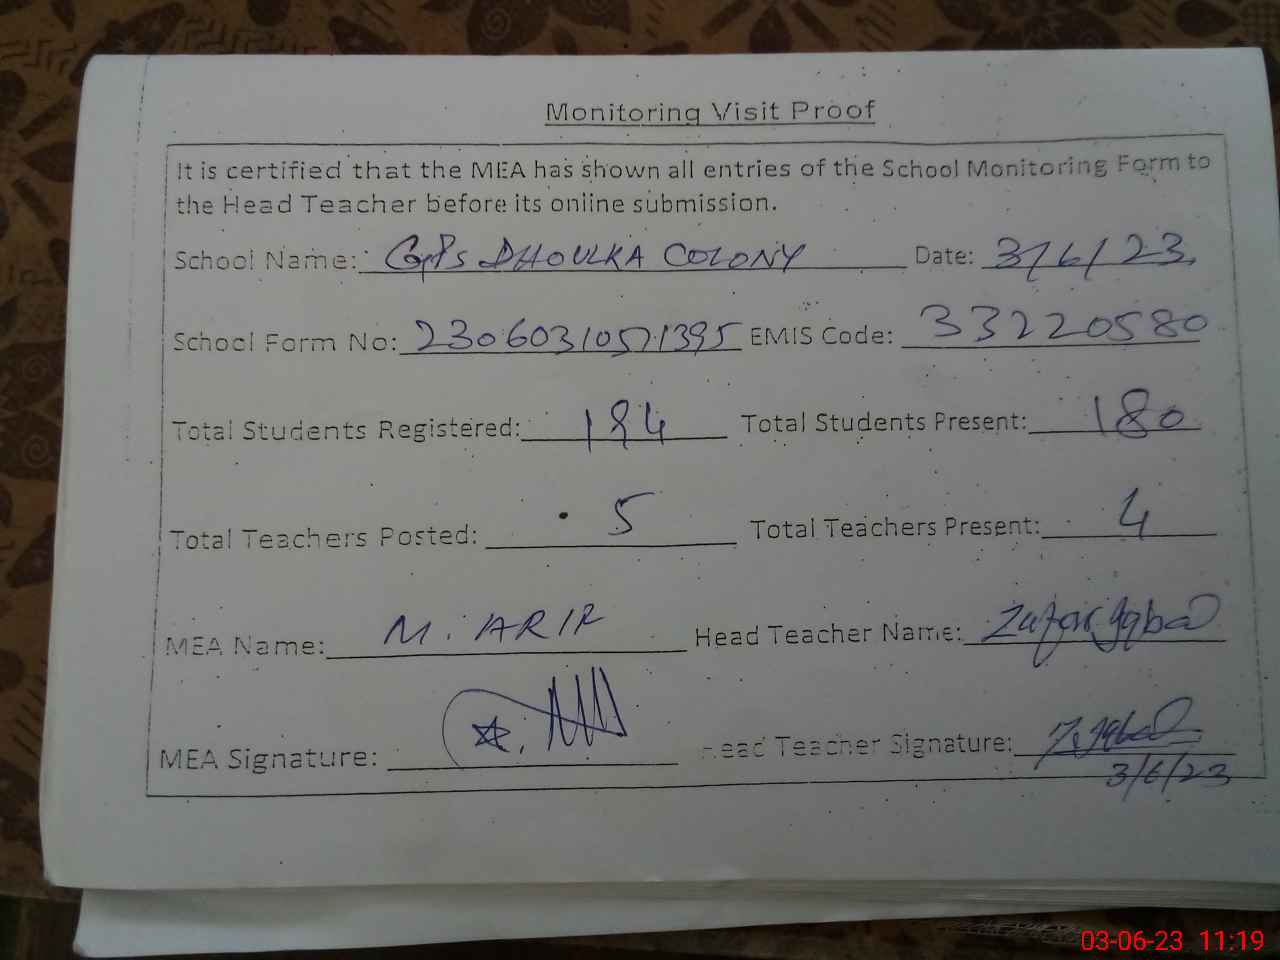 Monitoring Visit Proof
It is certified that the MEA has shown all entries of the School Monitoring Form to
the Head Teacher before its online submission.
School Name: GPS DHOULKA COLONY Date: 3/6/23
School Form No: EMIS Code: 33220580
Total Students Registered: Total Students Present: 180
Total Teachers Posted: 5 Total Teachers Present: 4
MEA Name: M. ARIF Head Teacher Name: Zafar Iqbal
MEA Signature: Head Teacher Signature: Z. Iqbal
3/6/23
03-06-23 11:19